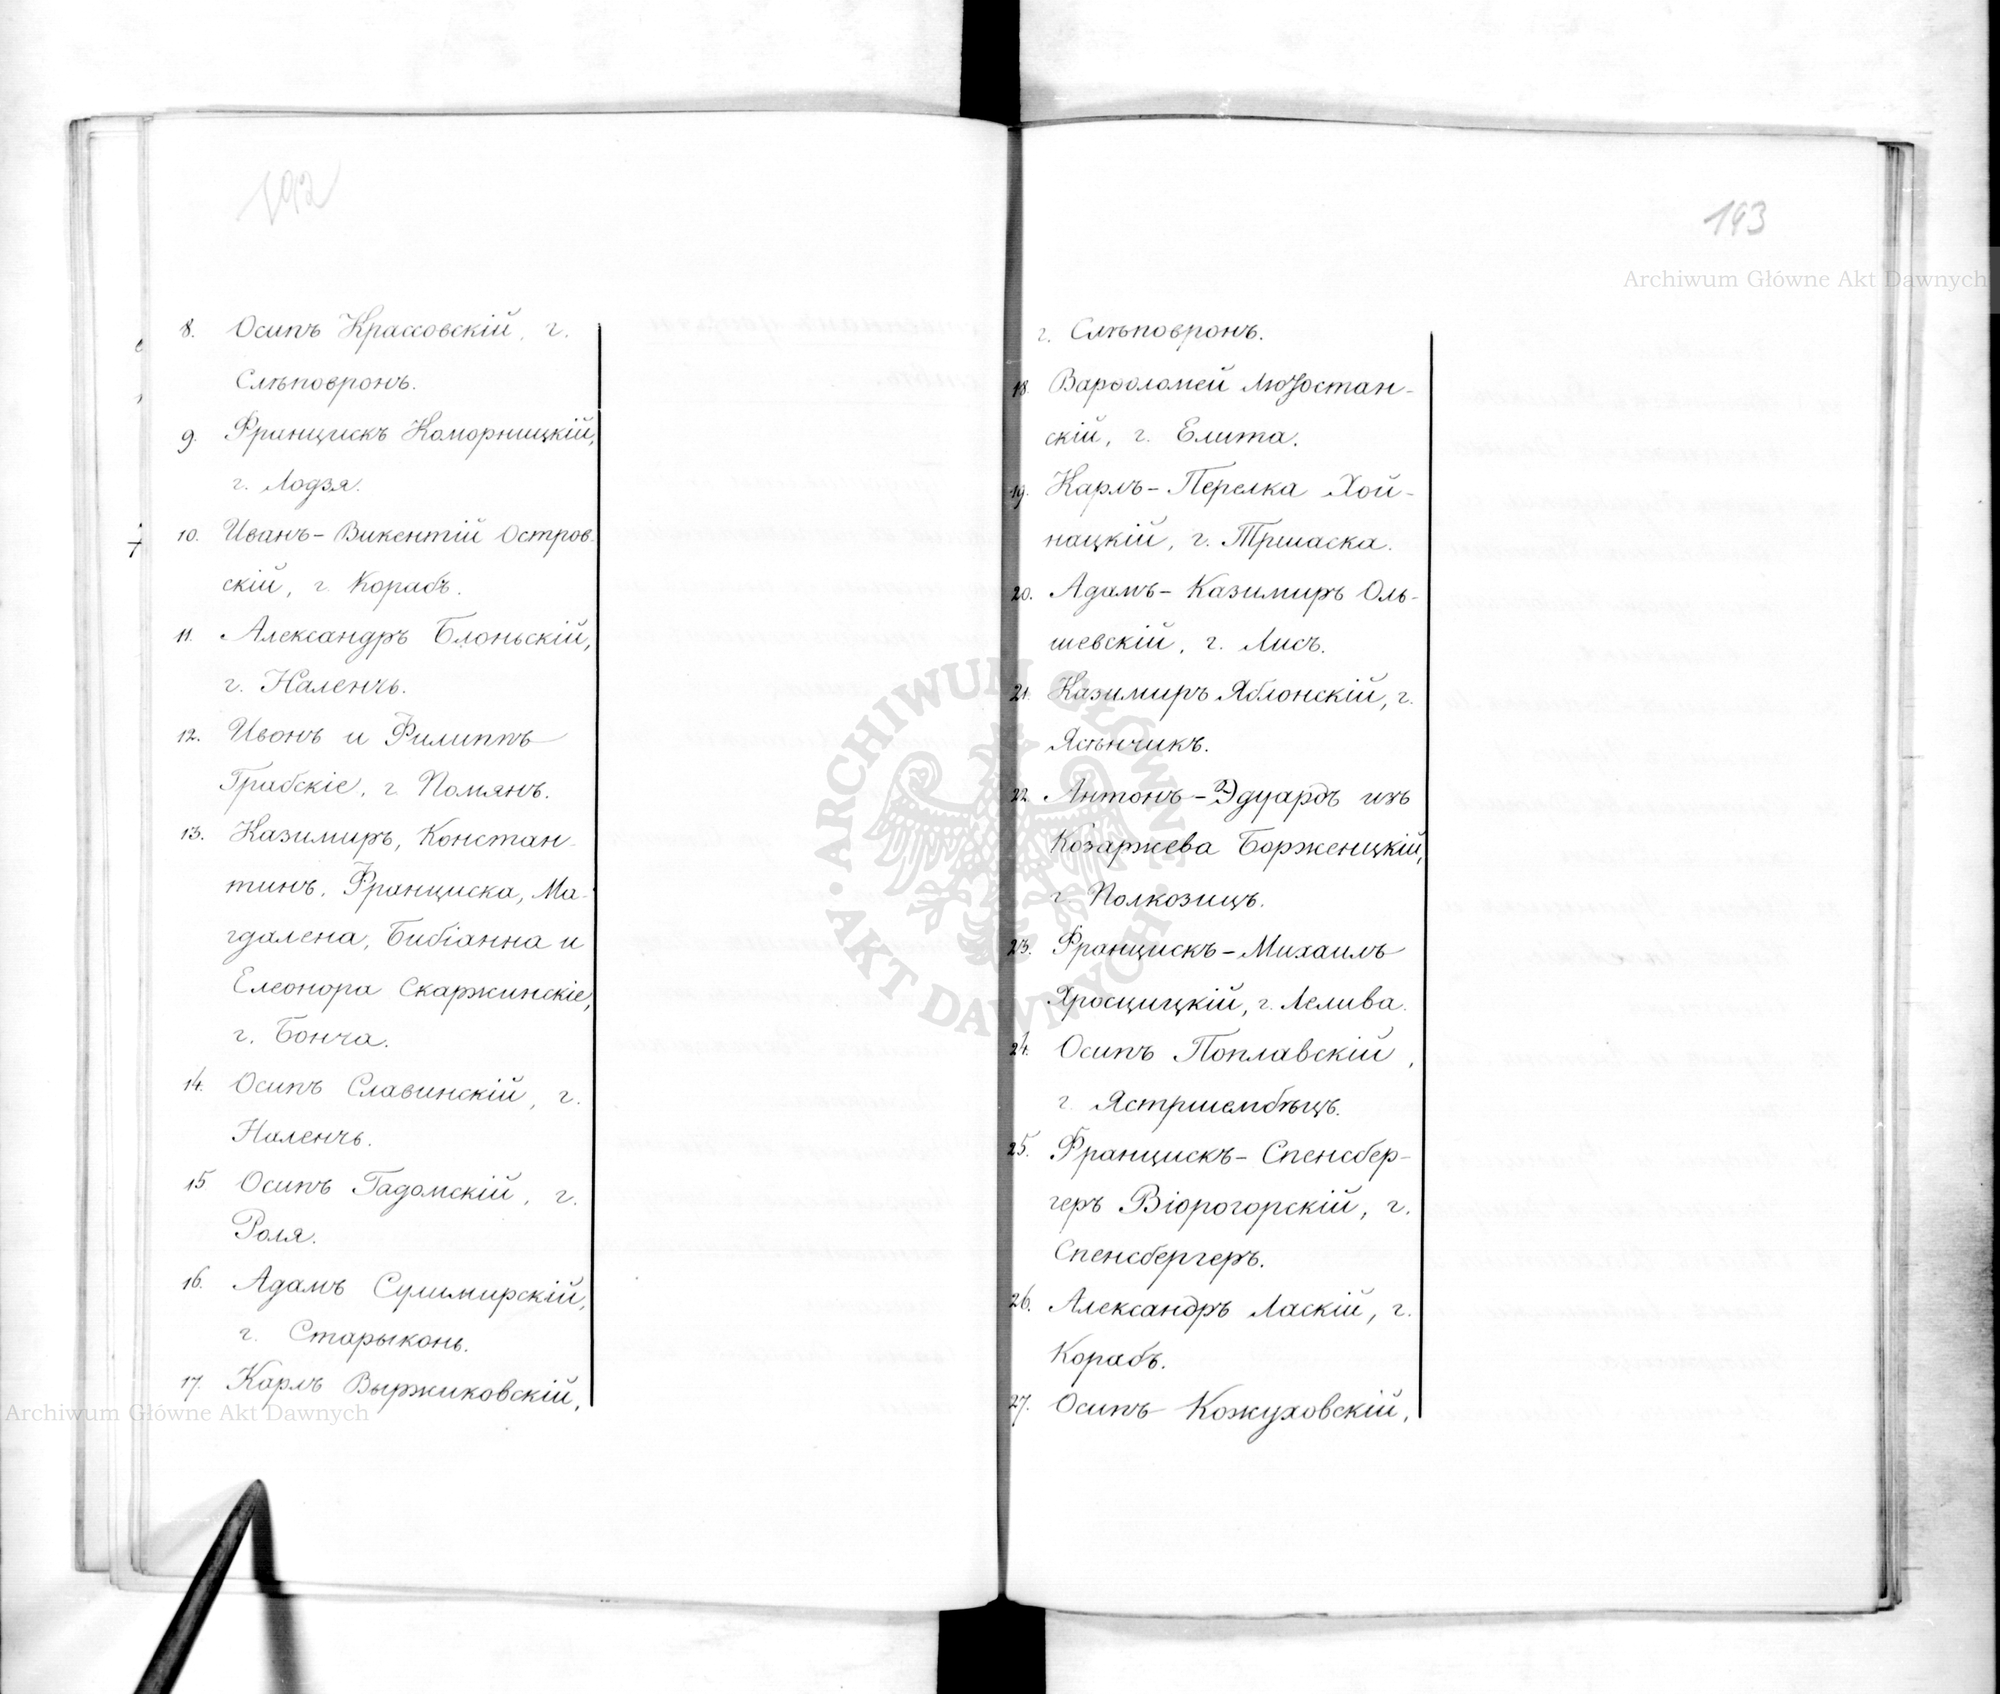 192
8. Осипъ Крассовскій, г.
Слѣповронъ.
9. Францискъ Коморницкій,
г. Лодзя.
10. Иванъ-Викентій Островскій, г. Корабъ.
11. Александръ Блоньскій,
г. Наленчъ.
12. Иванъ и Филиппъ
Грабскіе, г. Помянъ.
13. Казимиръ, Констан-
тинъ, Франциска, Ма-
гдалена, Бибіанна и
Елеонора Скаржинскіе,
г. Бонча.
14. Осипъ Славинскій, г.
Наленчъ.
15 Осипъ Гадомскій, г.
Роля.
16. Адамъ Сулимирскій,
г. Старыконь.
17. Карлъ Выржиковскій,
193
г. Слѣповронъ.
18. Варѳоломей
скій, г. Елита.
19. Карлъ-Перелка Хой-
нацкій, г. Тршаска.
20. Адамъ-Казимиръ Оль-
шевскій, г. Лисъ.
21. Казимиръ Яблонскій, г.
Ясѣнчикъ.
22. Антонъ-Эдуардъ изъ
Козаржева Борженцкій,
г. Полкозицъ.
23. Францискъ-Михаилъ
Хросцицкій, г. Лелива.
24. Осипъ Поплавскій,
г. Ястршембѣцъ.
25. Францискъ-Спенсбер-
геръ Віорогорскій, г.
Спенсбергеръ.
26. Александръ Ласкій, г.
Корабъ.
27. Осипъ Кожуховскій,
Archiwum Główne Akt Dawnych
Archiwum Główne Akt Dawnych
ARCHIWUM GŁÓWNE · AKT DAWNYCH ·